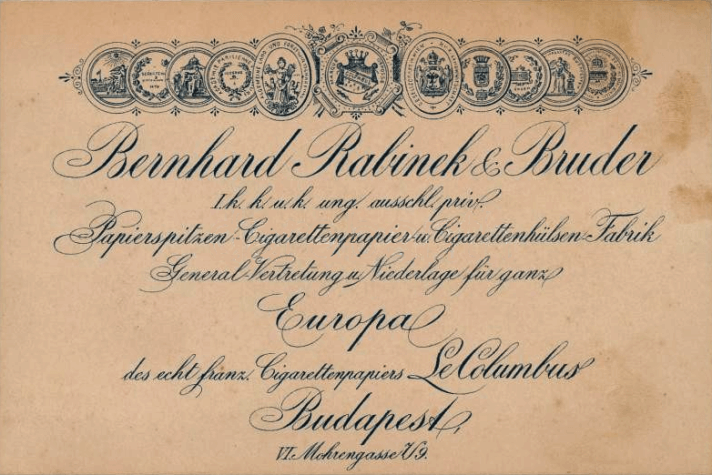 Bernhard Rabinek & Bruder
I. k. k. u. k. ung. ausschl. priv.
Papierspitzen-Cigarettenpapier- u. Cigarettenhülsen-Fabrik
General-Vertretung u. Niederlage für ganz
Europa
des echt franz. Cigarettenpapiers Le Columbus
Budapest,
VI. Mohrengasse 7/9.